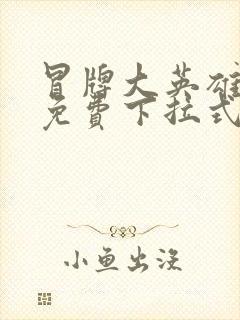 冒牌大英雄
免費下拉式
小鱼出没